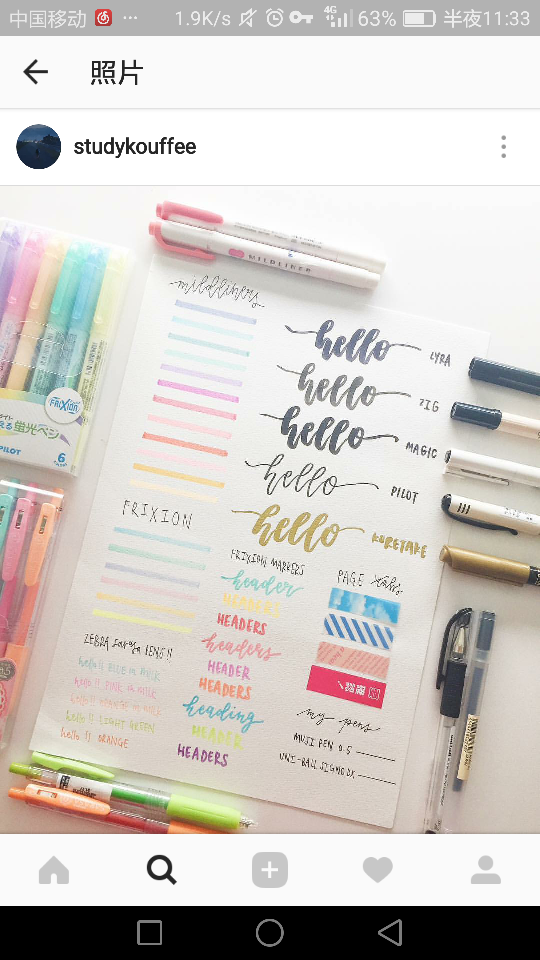 中国移动 ··· 1.9K/s 4G 63% 半夜11:33
照片
studykouffee
MILDLINER
mildliners
hello LYRA
hello ZIG
hello MAGIC
hello PILOT
hello KURETAKE
FRIXION
蛍光ペン
PILOT
6
FRIXION
FRIXION MARKERS
header
HEADERS
HEADERS
headers
HEADER
HEADERS
heading
HEADER
HEADERS
PAGE
ZEBRA sarasa PENS!!
hello!! BLUE in MILK
hello!! PINK in MILK
hello!! ORANGE in MILK
hello!! LIGHT GREEN
hello!! ORANGE
my pens
MUJI PEN 0.5
UNI-BALL SIGNO DX